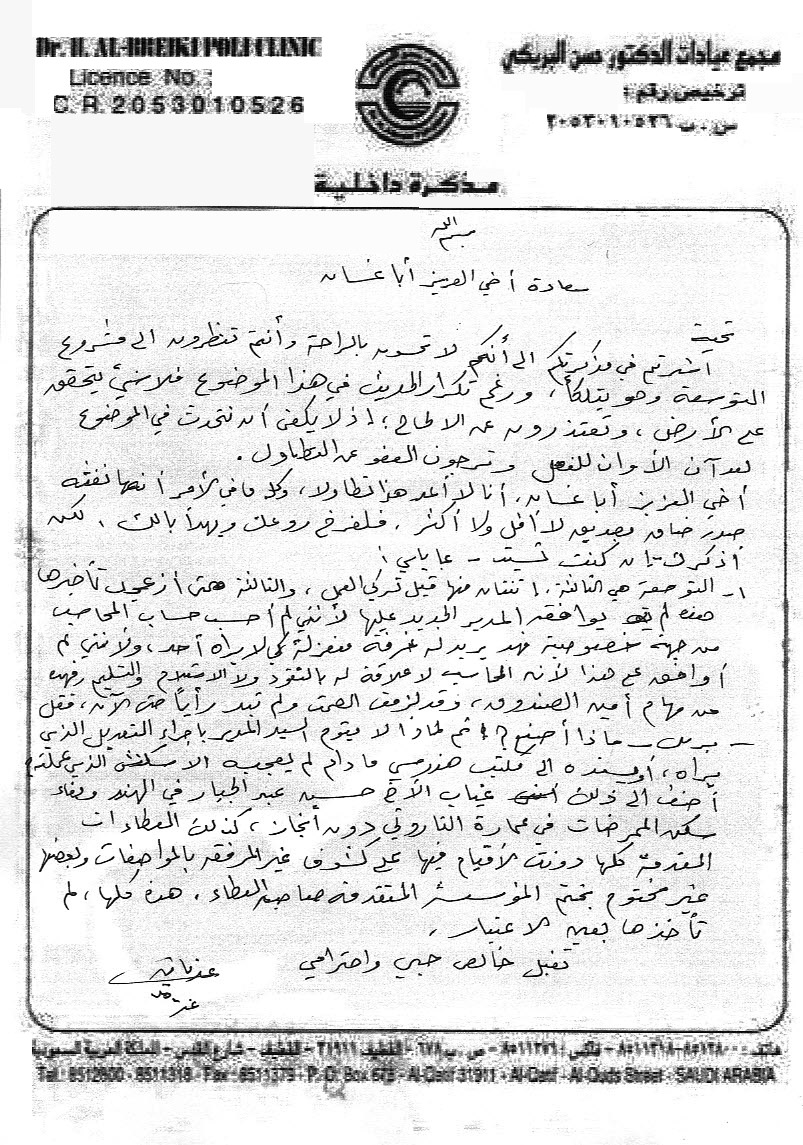 Dr. H. AL-BREIKI POLICLINIC
Licence No. :
C. R. 2053010526
مجمع عيادات الدكتور حسن البريكي
ترخيص رقم :
س . ت ٢٠٥٣٠١٠٥٢٦
مذكرة داخلية
بسم الله
سعادة أخي العزيز أبا غسان
تحية
أشرتم في مذكرتكم الى أنكم لا تحسون بالراحة وأنتم تنظرون الى مشروع
التوسعة وهو يتلكأ، ورغم تكرار الحديث في هذا الموضوع فلا شيء يتحقق
على الأرض، وتعتذرون عن الالحاح؛ إذ لا يكفي أن نتحدث في الموضوع
لقد آن الأوان للفعل وترجون العفو عن التطاول.
أخي العزيز أبا غسان، أنا لا أعد هذا تطاولا، وكل ما في الأمر أنها نفثة
صدر صادق بصديق لا أقل ولا أكثر، فليفرخ روعك ويهدأ بالك. لكن
أذكرك - إن كنت نسيت - بما يلي:
١- التوسعة هي الثالثة، اثنتان منها قبل تركي العمل، والثالثة حتى أزعجك تأخيرها
هذه لم يوافق المدير الجديد عليها لأنني لم أحسب حساب المحاسب
من جهة خصوصية فهو يريد له غرفة منعزلة كي لا يراه أحد، ولأنني لم
أوافق على هذا لأن المحاسب لا علاقة له بالنقود ولا الاستلام والتسليم فهذه
من مهام أمين الصندوق، وقد لزمت الصمت ولم تبد رأياً حتى الآن، فقل
- بربك - ماذا أصنع؟! ثم لماذا لا يقوم السيد المدير باجراء التعديل الذي
يراه، أو يسنده الى مكتب هندسي ما دام لم يعجبه الاسكتش الذي عملته؟
أضف الى ذلك غياب الأخ حسين عبد الجبار في الهند وبقاء
سكن الممرضات في عمارة الناروتي دون انجاز، كذلك العطاءات
المقدمة كلها دونت الأقيام فيها على كشوف غير المرفقة بالمواصفات وبعضها
غير مختوم بختم المؤسسة المتقدمة صاحبة العطاء. هذه كلها، لم
تأخذها بعين الاعتبار.
تقبل خالص حبي واحترامي
عدنان
هاتف : ٨٥١٢٨٠٠-٨٥١١٣١٨ - فاكس : ٨٥١١٣٧٦ - ص . ب ٦٧٨ - القطيف ٣١٩١١ - القطيف - شارع القدس - المملكة العربية السعودية
Tel : 8512800 - 8511318 - Fax : 8511379 - P. O. Box 678 - Al-Qatif 31911 - Al-Qatif - Al-Quds Street - SAUDI ARABIA